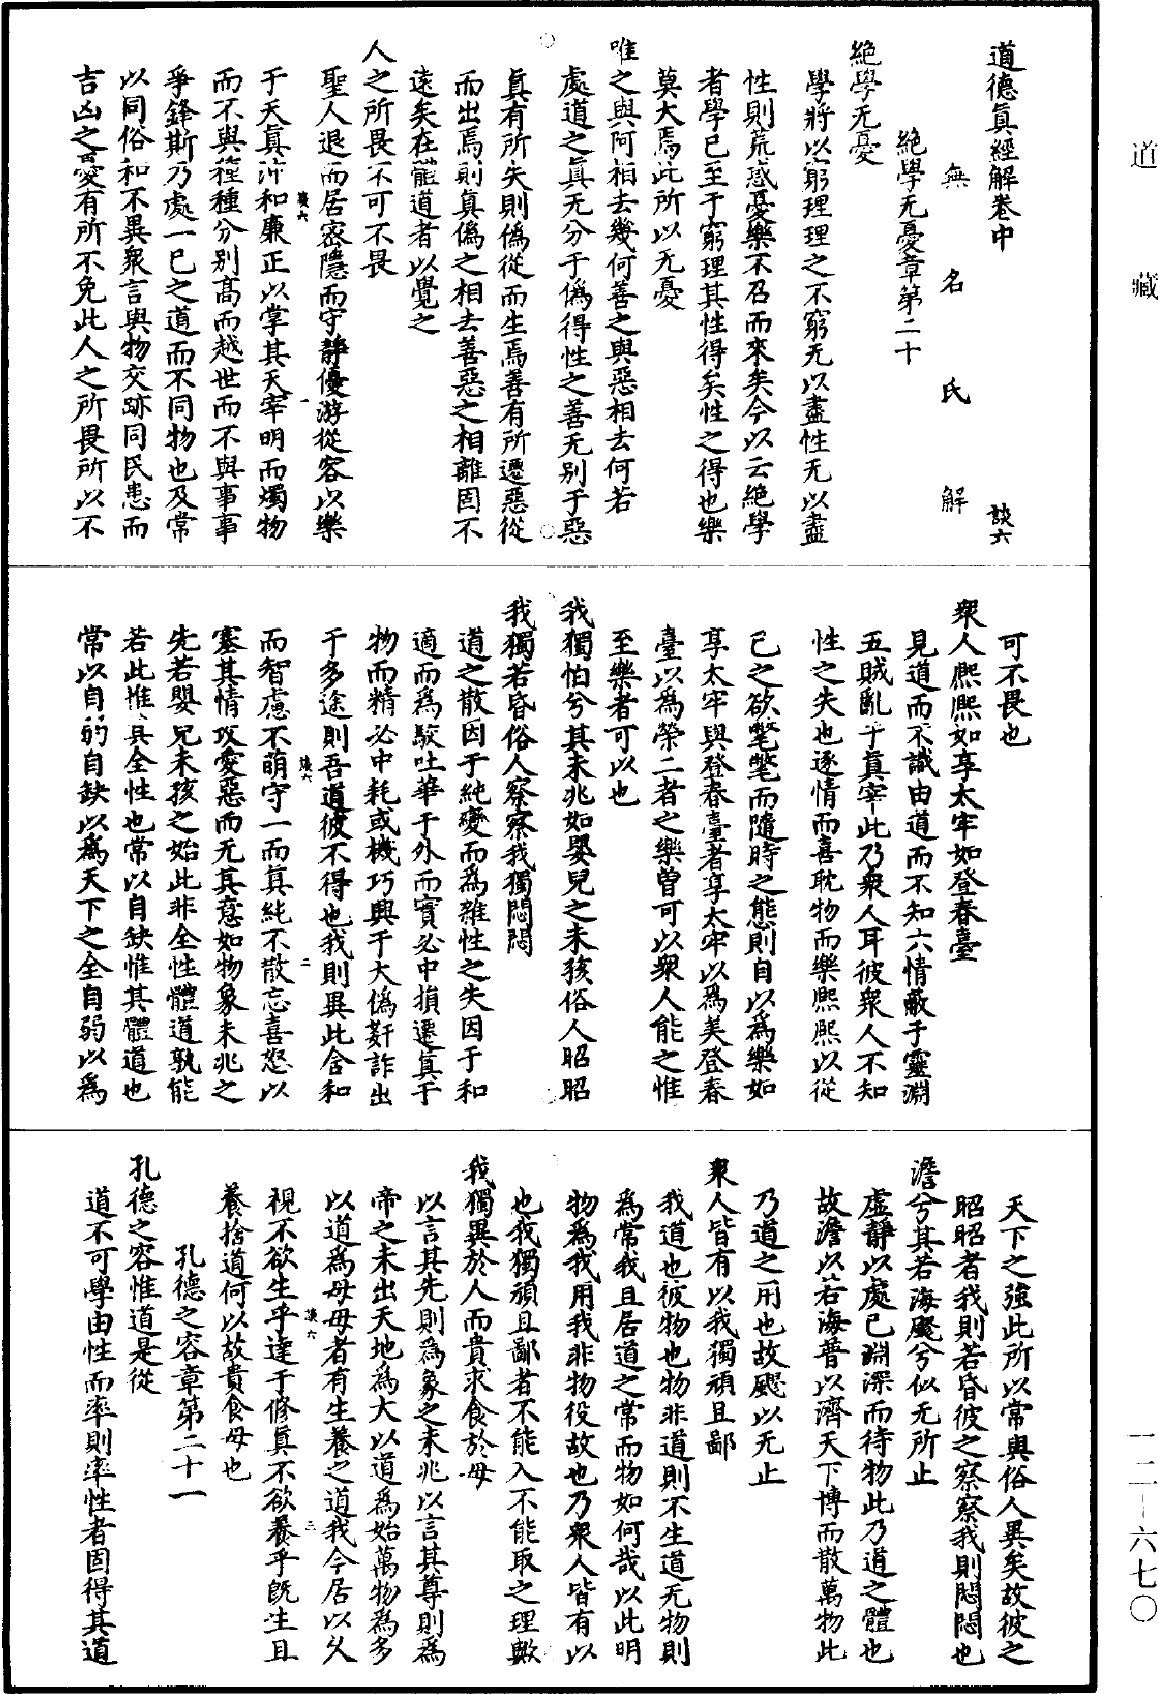 道藏
道德眞經解卷中 談六
無名氏解
絶學无憂章第二十
絶學无憂
學將以窮理理之不窮无以盡性无以盡
性則荒惑憂樂不召而來矣今以云絶學
者學已至于窮理其性得矣性之得也樂
莫大焉此所以无憂
唯之與阿相去幾何善之與惡相去何若
處道之眞无分于僞得性之善无别于惡
眞有所失則僞從而生焉善有所遷惡從
而出焉則眞僞之相去善惡之相離固不
遠矣在體道者以覺之
人之所畏不可不畏
聖人退而居密隱而守靜優游從容以樂
談六 一
于天眞沖和廉正以掌其天宰明而燭物
而不與種種分别高而越世而不與事事
爭鋒斯乃處一已之道而不同物也及常
以同俗和不異衆言與物交跡同民患而
吉凶之憂有所不免此人之所畏所以不
可不畏也
衆人熈熈如享太牢如登春臺
見道而不識由道而不知六情蔽于靈淵
五賊亂于真宰此乃衆人耳彼衆人不知
性之失也逐情而喜耽物而樂熈熈以從
已之欲氅氅而隨時之態則自以爲樂如
享太牢與登春臺者享太牢以爲美登春
臺以爲榮二者之樂曽可以衆人能之惟
至樂者可以也
我獨怕兮其未兆如嬰兒之未孩俗人昭昭
我獨若昏俗人察察我獨悶悶
道之散因于純變而爲雜性之失因于和
適而爲駁吐華于外而實必中損遷真于
物而精必中耗或機巧興于大僞姧詐出
于多途則吾道彼不得也我則異此含和
談六 二
而智慮不萌守一而真純不散忘喜怒以
塞其情攻愛惡而无其意如物象未兆之
先若嬰兒未孩之始此非全性體道孰能
若此惟其全性也常以自缺惟其體道也
常以自弱自缺以爲天下之全自弱以爲
天下之強此所以常與俗人異矣故彼之
昭昭者我則若昏彼之察察我則悶悶也
澹兮其若海飂兮似无所止
虚靜以處已淵深而待物此乃道之體也
故澹以若海普以濟天下博而散萬物此
乃道之用也故飂以无止
衆人皆有以我獨頑且鄙
我道也彼物也物非道則不生道无物則
爲常我且居道之常而物如何哉以此明
物爲我用我非物役故也乃衆人皆有以
也我獨頑且鄙者不能入不能取之理歟
我獨異於人而貴求食於母
以言其先則爲象之未兆以言其尊則爲
帝之未出天地爲大以道爲始萬物爲多
以道爲母母者有生養之道我今居以久
談六 三
視不欲生乎達于修眞不欲養乎旣生且
養捨道何以故貴食母也
孔德之容章第二十一
孔德之容惟道是從
道不可學由性而率則率性者固得其道
一二-六七〇